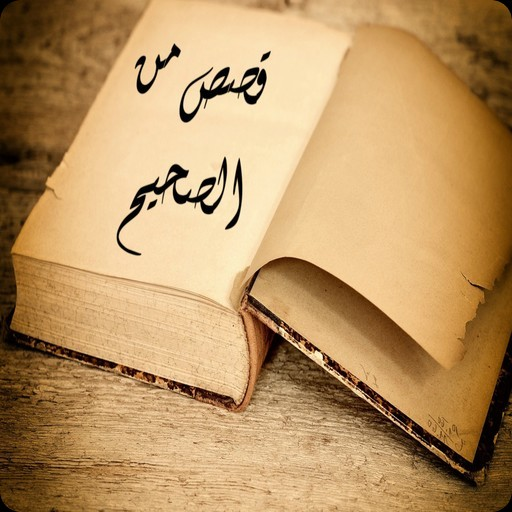 قصص من
الصحيح